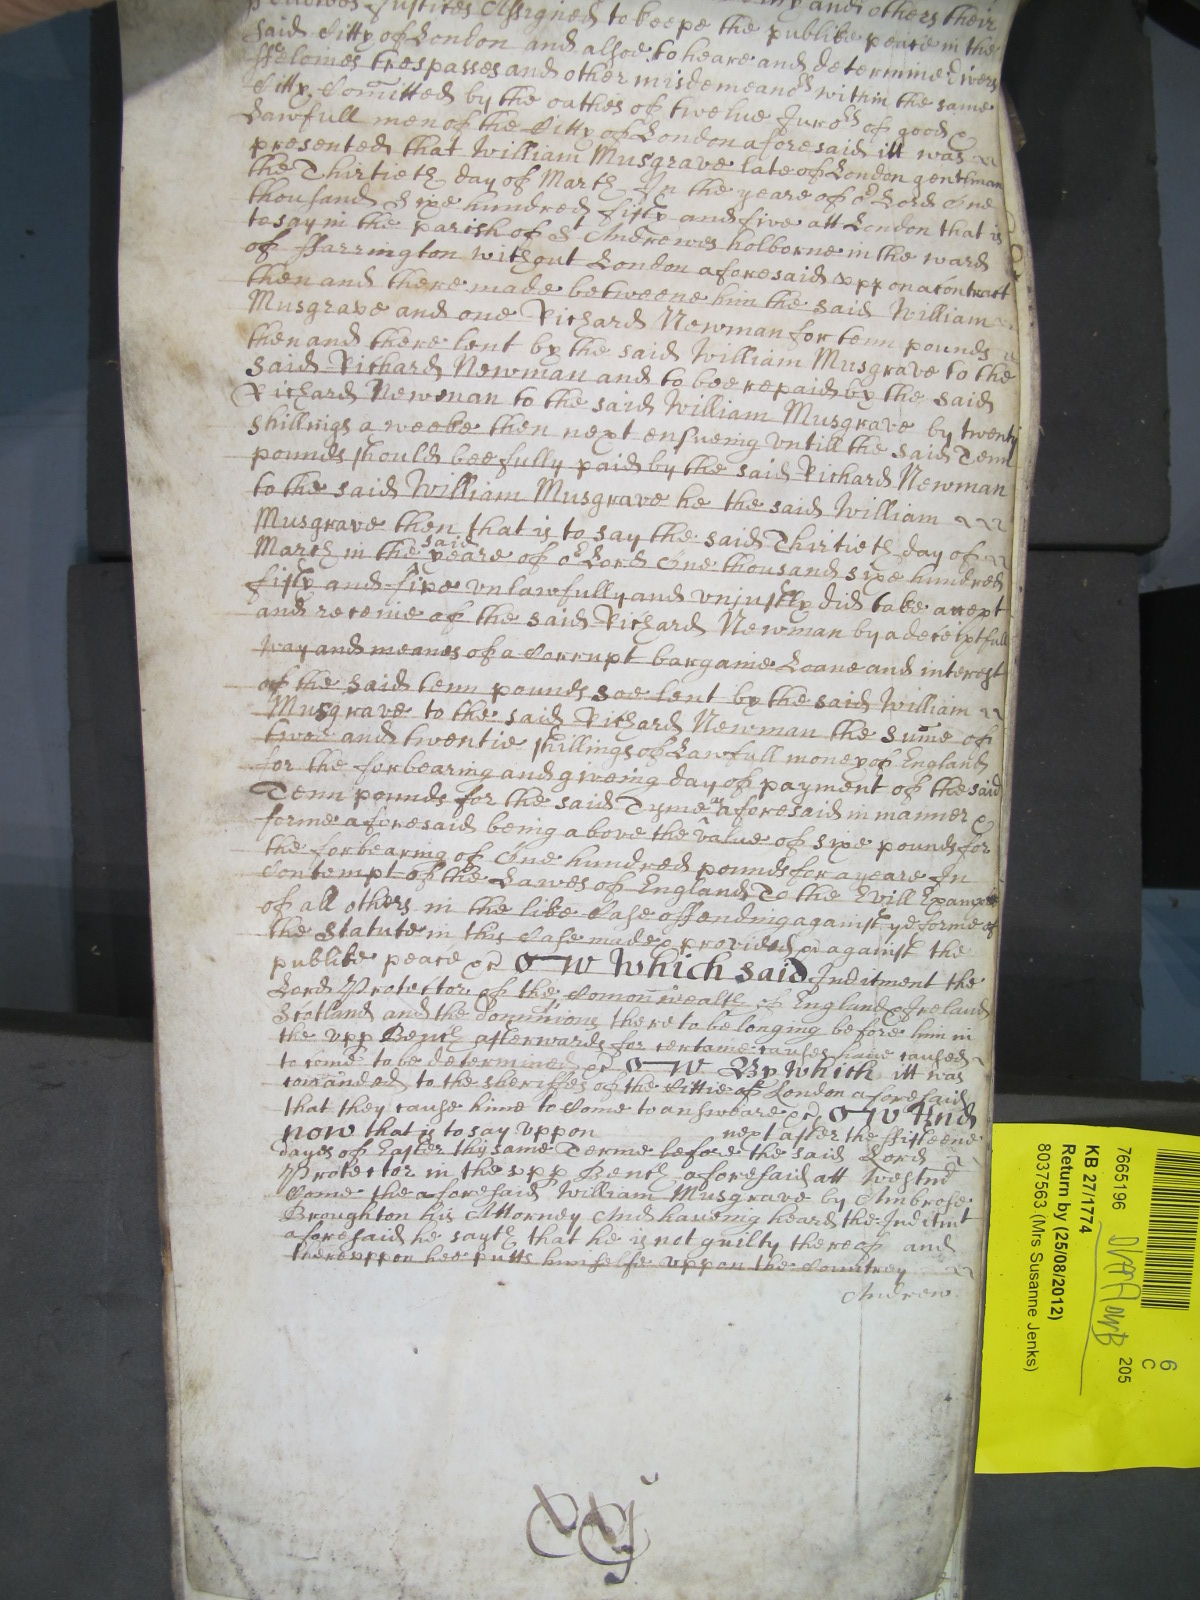 Justices Assigned to keepe the publike peace in the
said Citty of London and alsoe to heare and determine divers
ffelonies trespasses and other misdemeanors within the same
Citty Comitted by the oathes of twelve Jurors of good &
Lawfull men of the Citty of London aforesaid itt was
presented that William Musgrave late of London gentleman
the Thirtieth day of March In the yeare of or Lord One
thousand Sixe hundred fifty and five att London that is
to say in the parish of St Andrewes holborne in the ward
of ffarrington without London aforesaid uppon a contract
then and there made betweene him the said William
Musgrave and one Richard Newman for tenn pounds
then and there lent by the said William Musgrave to the
said Richard Newman and to bee repaid by the said
Richard Newman to the said William Musgrave by twenty
shillings a weeke then next ensueing untill the said Tenn
pounds should bee fully paid by the said Richard Newman
to the said William Musgrave he the said William
Musgrave then that is to say the said Thirtieth day of
March in the said yeare of or Lord One thousand sixe hundred
fifty and five unlawfully and unjustly did take accept
and receive of the said Richard Newman by a deceiptfull
way and meanes of a Corrupt bargaine Loane and interest
of the said tenn pounds soe lent by the said William
Musgrave to the said Richard Newman the sume of
twoe and twentie shillings of Lawfull money of England
for the forbearing and giveing day of payment of the said
Tenn pounds for the said Tyme as aforesaid in manner &
forme aforesaid being above the value of sixe pounds for
the forbearing of One hundred pounds for a yeare In
Contempt of the Lawes of England To the Evill Example
of all others in the like Case offending against ye forme of
the Statute in this Case made & provided & against the
publike peace &c Which said Inditment the
Lord Protector of the Comonwealth of England & Ireland
Scotland and the dominions thereto belonging before him in
the upp Bench afterwards for certaine causes have caused
to come to be determined &c By which itt was
comanded to the sheriffes of the Cittie of London aforesaid
that they cause hime to Come to answeare &c And
now that is to say uppon next after the ffifteene
dayes of Easter this same Terme before the said Lord
Protector in the upp Bench aforesaid att Westmr
Came the aforesaid William Musgrave by Ambrose
Broughton his Attorney And haveing heard the Inditmt
aforesaid he sayth that he is not guilty thereof and
thereuppon hee putts himselfe uppon the Countrey
Andrew
xxj
7665196
KB 27/1774
Return by (25/08/2012)
8037563 (Mrs Susanne Jenks)
205
6
C